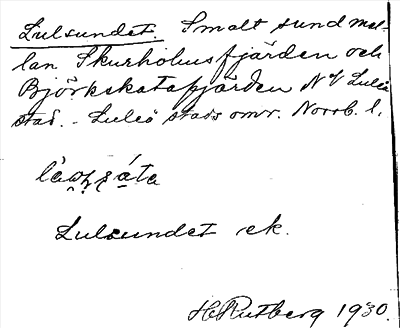 Lulsundet. Smalt sund mel-
lan Skurholmsfjärden och
Björkskatafjärden NV Luleå
stad. - Luleå stads omr. Norrb. l.
Lulsundet ek.
H Rutberg 1930.